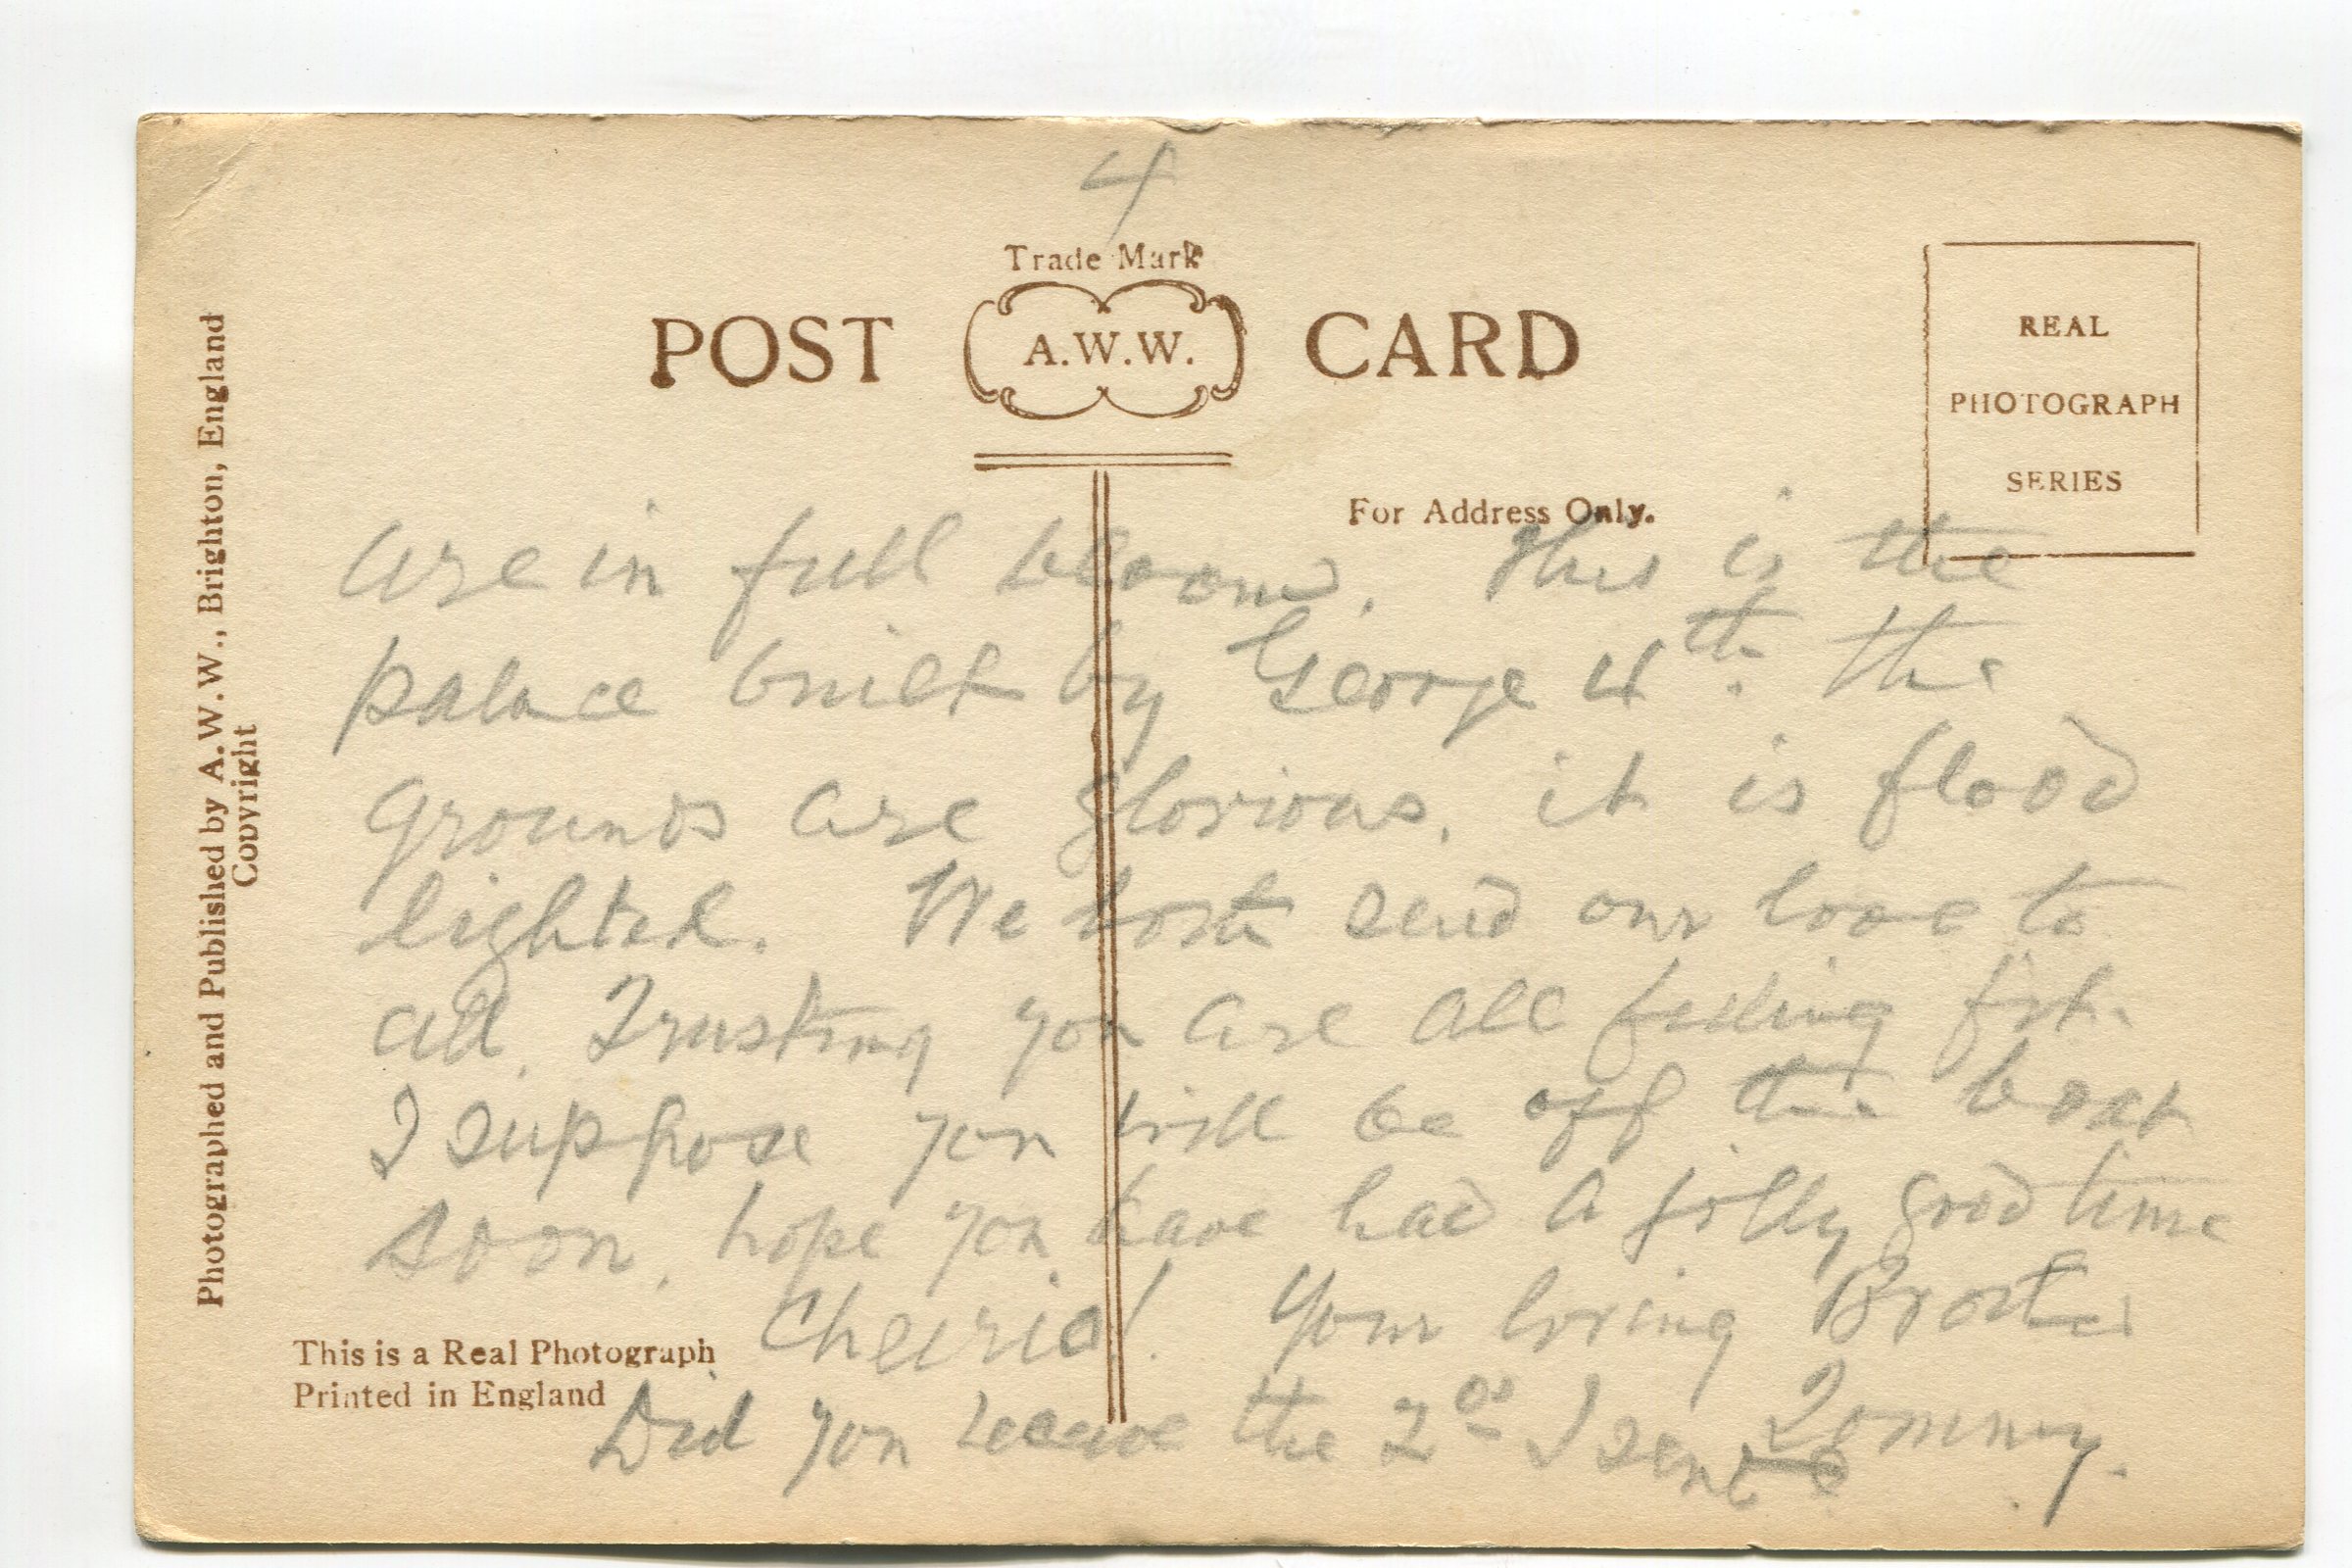 4
Trade Mark
POST A.W.W. CARD
REAL
PHOTOGRAPH
SERIES
For Address Only.
are in full bloom. This is the
palace built by George 4th. the
grounds are glorious, it is flood
lighted. We both send our love to
all. Trusting you are all feeling fit.
I suppose you will be off the boat
soon, hope you have had a jolly good time
Cheirio! Your loving Brother
Tommy.
Did you receive the 2 I sent
Photographed and Published by A.W.W., Brighton, England
Copyright
This is a Real Photograph
Printed in England